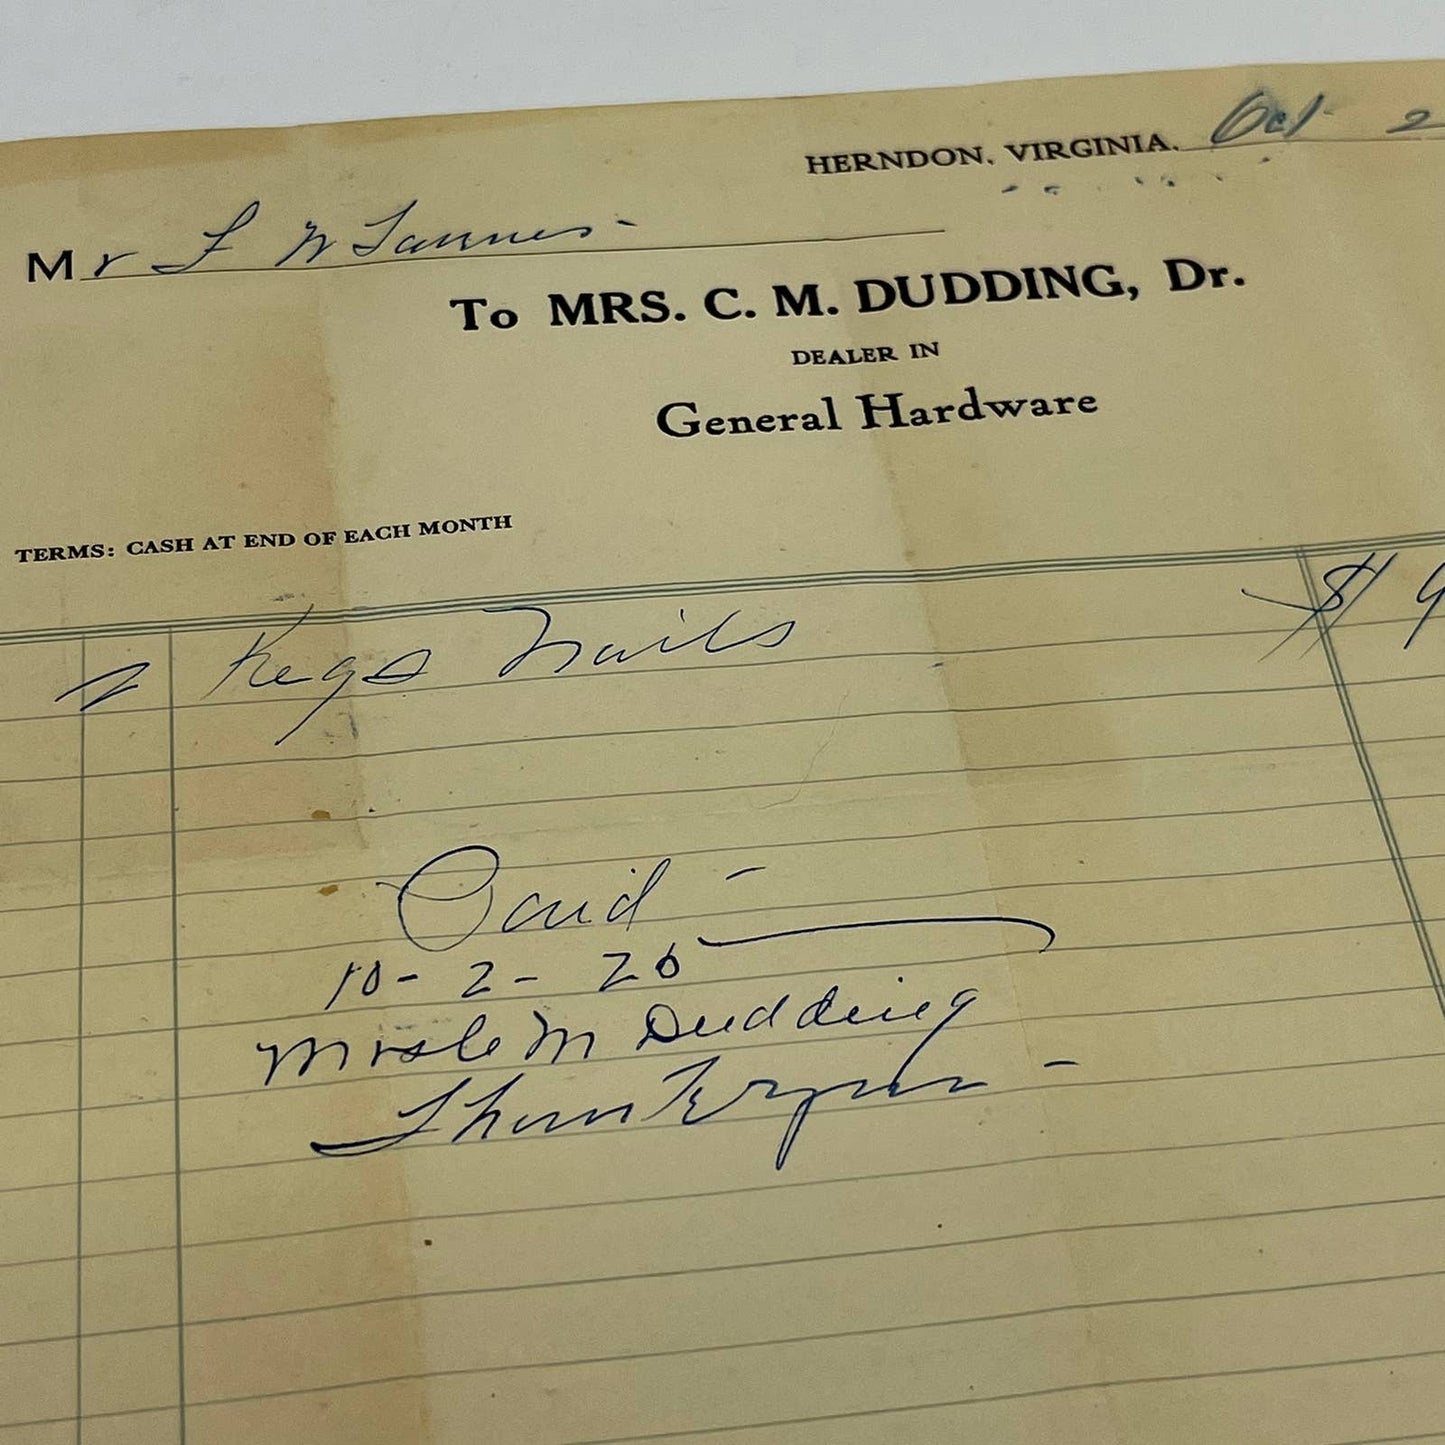 HERNDON, VIRGINIA. Oct 2
Mr F W
To MRS. C. M. DUDDING, Dr.
DEALER IN
General Hardware
TERMS: CASH AT END OF EACH MONTH
2 Kegs Nails $ 9
Paid -
10 - 2 - 26
Mrs C M Dudding